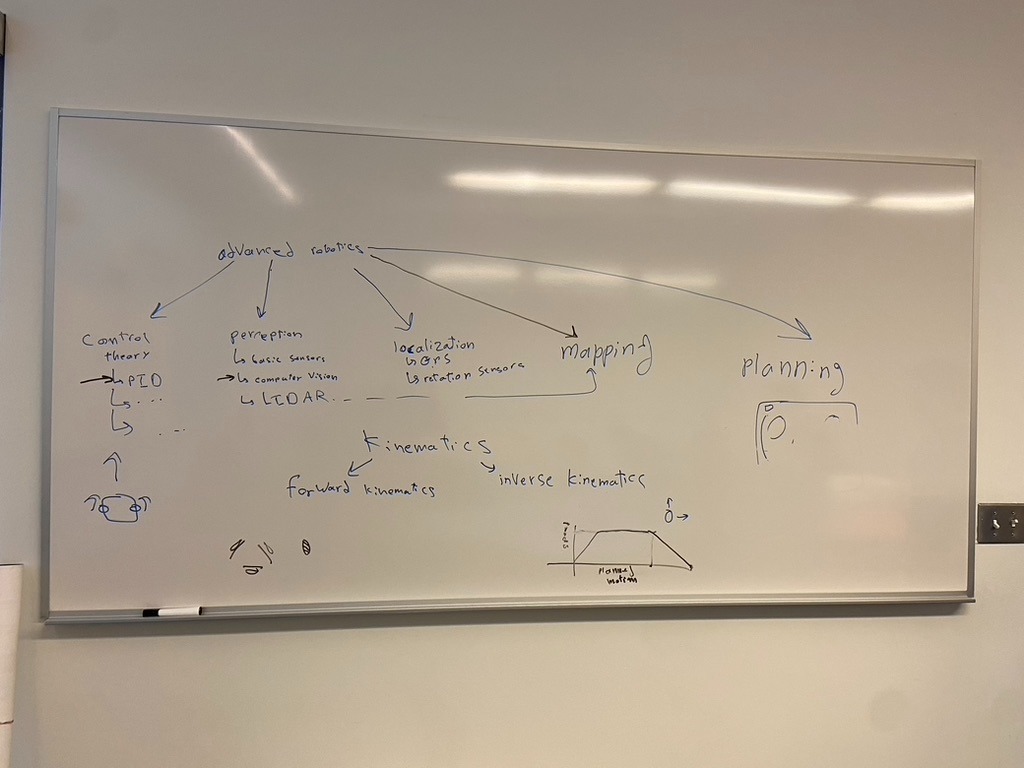 advanced robotics
control
theory
PID
...
...
perception
basic sensors
computer vision
LIDAR
localization
GPS
rotation sensors
mapping
planning
Kinematics
forward kinematics
inverse kinematics
speed
planned
motion